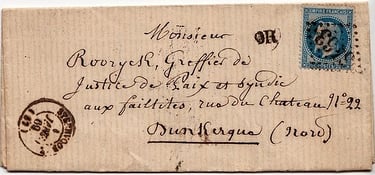 Monsieur
Rooryck, Greffier de
Justice de Paix et syndic
aux faillites, rue du Chateau N° 22
Dunkerque (Nord)
OR
EMPIRE FRANC